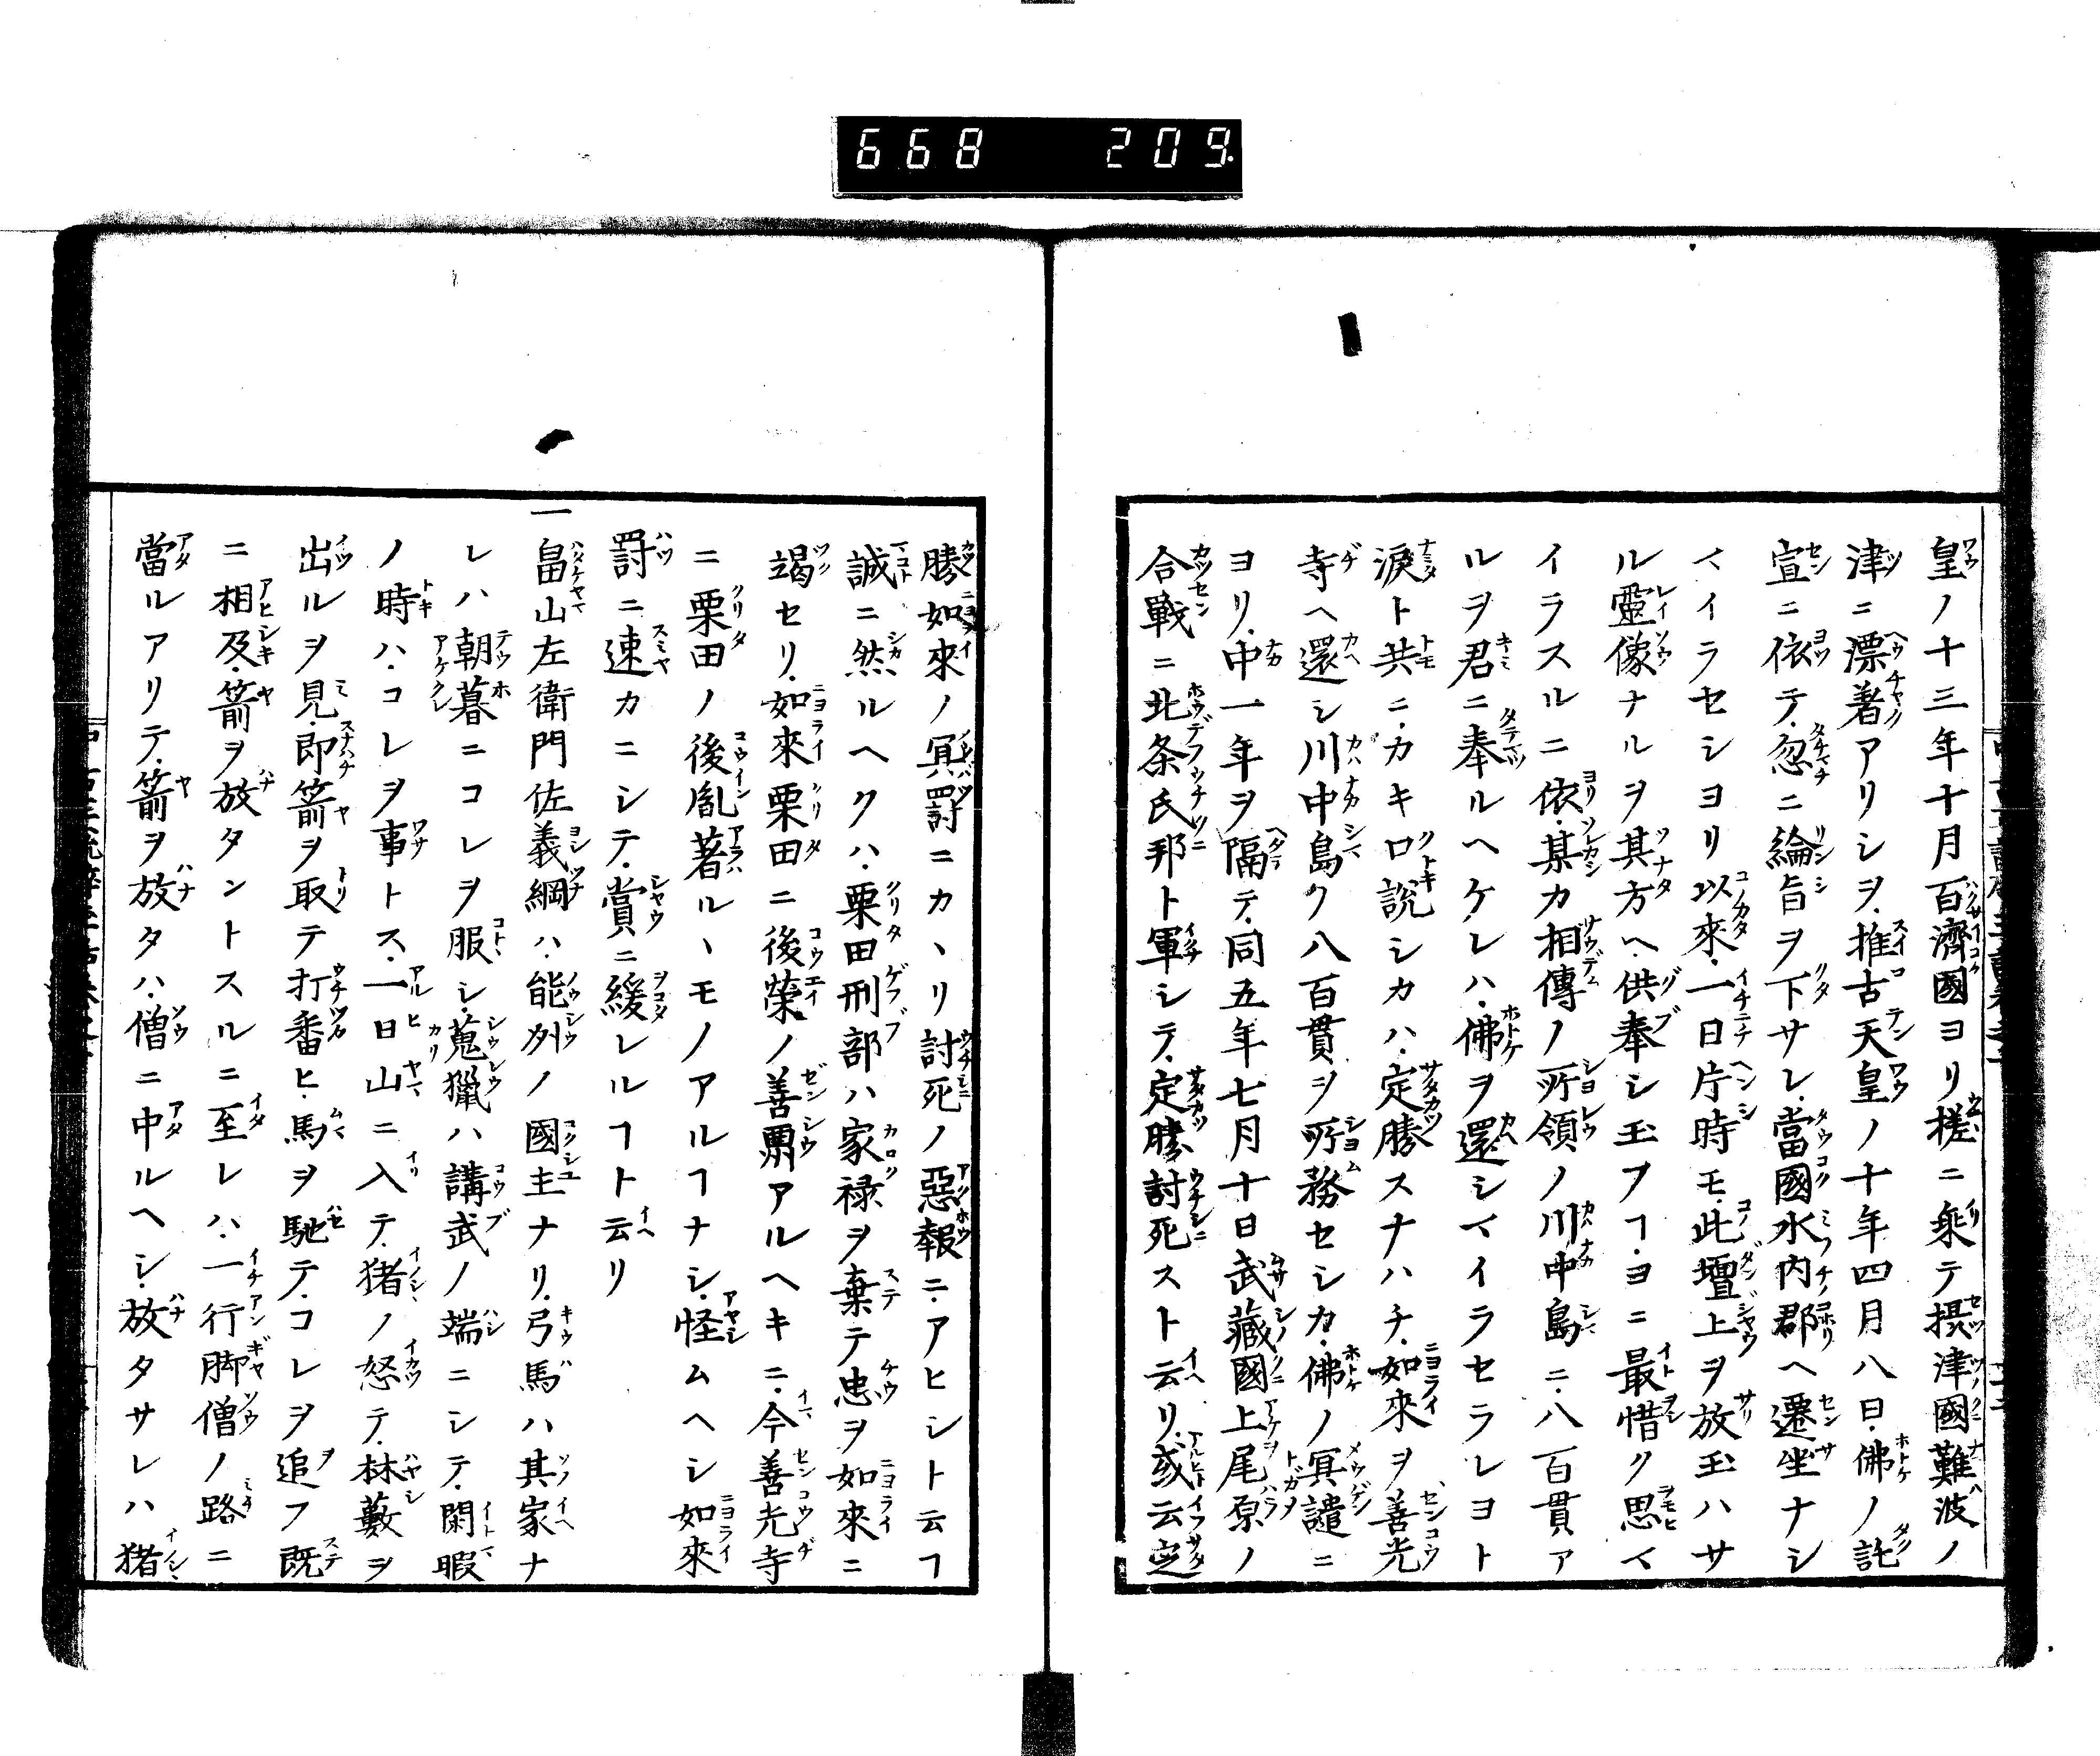 668 209
皇ノ十三年十月百濟國ヨリ槎ニ乗テ摂津國難波ノ
津ニ漂著アリシヲ推古天皇ノ十年四月八日佛ノ託
宣ニ依テ忽ニ綸旨ヲ下サレ當國水内郡ヘ遷坐ナシ
マイラセシヨリ以來一日片時モ此壇上ヲ放玉ハサ
ル靈像ナルヲ其方ヘ供奉シ玉フヿヨニ最惜ク思マ
イラスルニ依某カ相傳ノ所領ノ川中島ニ八百貫ア
ルヲ君ニ奉ルヘケレハ佛ヲ還シマイラセラレヨト
淚ト共ニカキロ説シカハ定勝スナハチ如來ヲ善光
寺ヘ還シ川中島ク八百貫ヲ所務セシカ佛ノ冥譴ニ
ヨリ中一年ヲ隔テ同五年七月十日武藏國上尾原ノ
合戰ニ北条氏邦ト軍シテ定勝討死スト云リ或云定
勝如來ノ冥罸ニカヽリ討死ノ惡報ニアヒシト云フ
誠ニ然ルヘクハ栗田刑部ハ家禄ヲ棄テ忠ヲ如來ニ
竭セリ如來栗田ニ後榮ノ善酬アルヘキニ今善光寺
ニ栗田ノ後胤著ルヽモノアルヿナシ怪ムヘシ如來
罸ニ速カニシテ賞ニ緩レルヿト云リ
一畠山左衛門佐義綱ハ能州ノ國主ナリ弓馬ハ其家ナ
レハ朝暮ニコレヲ服シ蒐獵ハ講武ノ端ニシテ閑暇
ノ時ハコレヲ事トス一日山ニ入テ猪ノ怒テ林藪ヲ
出ルヲ見即箭ヲ取テ打番ヒ馬ヲ馳テコレヲ追フ既
ニ相及箭ヲ放タントスルニ至レハ一行脚僧ノ路ニ
當ルアリテ箭ヲ放タハ僧ニ中ルヘシ放タサレハ猪